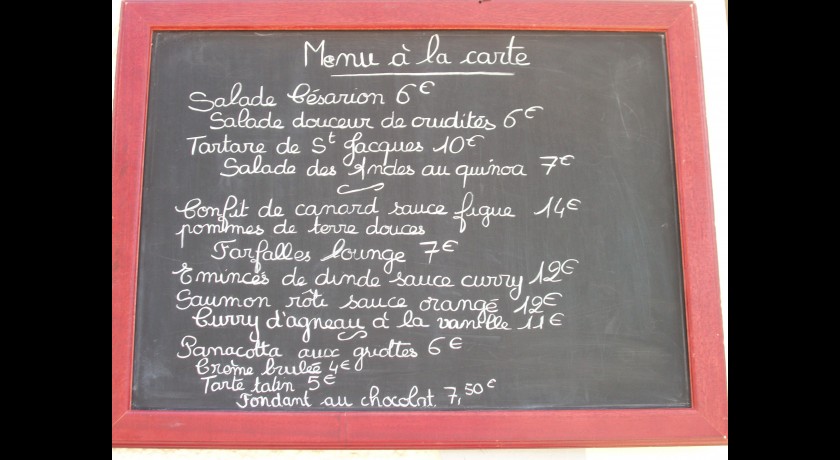 Menu à la carte
Salade Césarion 6€
Salade douceur de crudités 6€
Tartare de St Jacques 10€
Salade des Andes au quinoa 7€
Confit de canard sauce figue 14€
pommes de terre douces
Farfalles lounge 7€
Emincés de dinde sauce curry 12€
Saumon rôti sauce orange 12€
Curry d'agneau à la vanille 11€
Panacotta aux griottes 6€
Crème brulée 4€
Tarte tatin 5€
Fondant au chocolat 7,50€